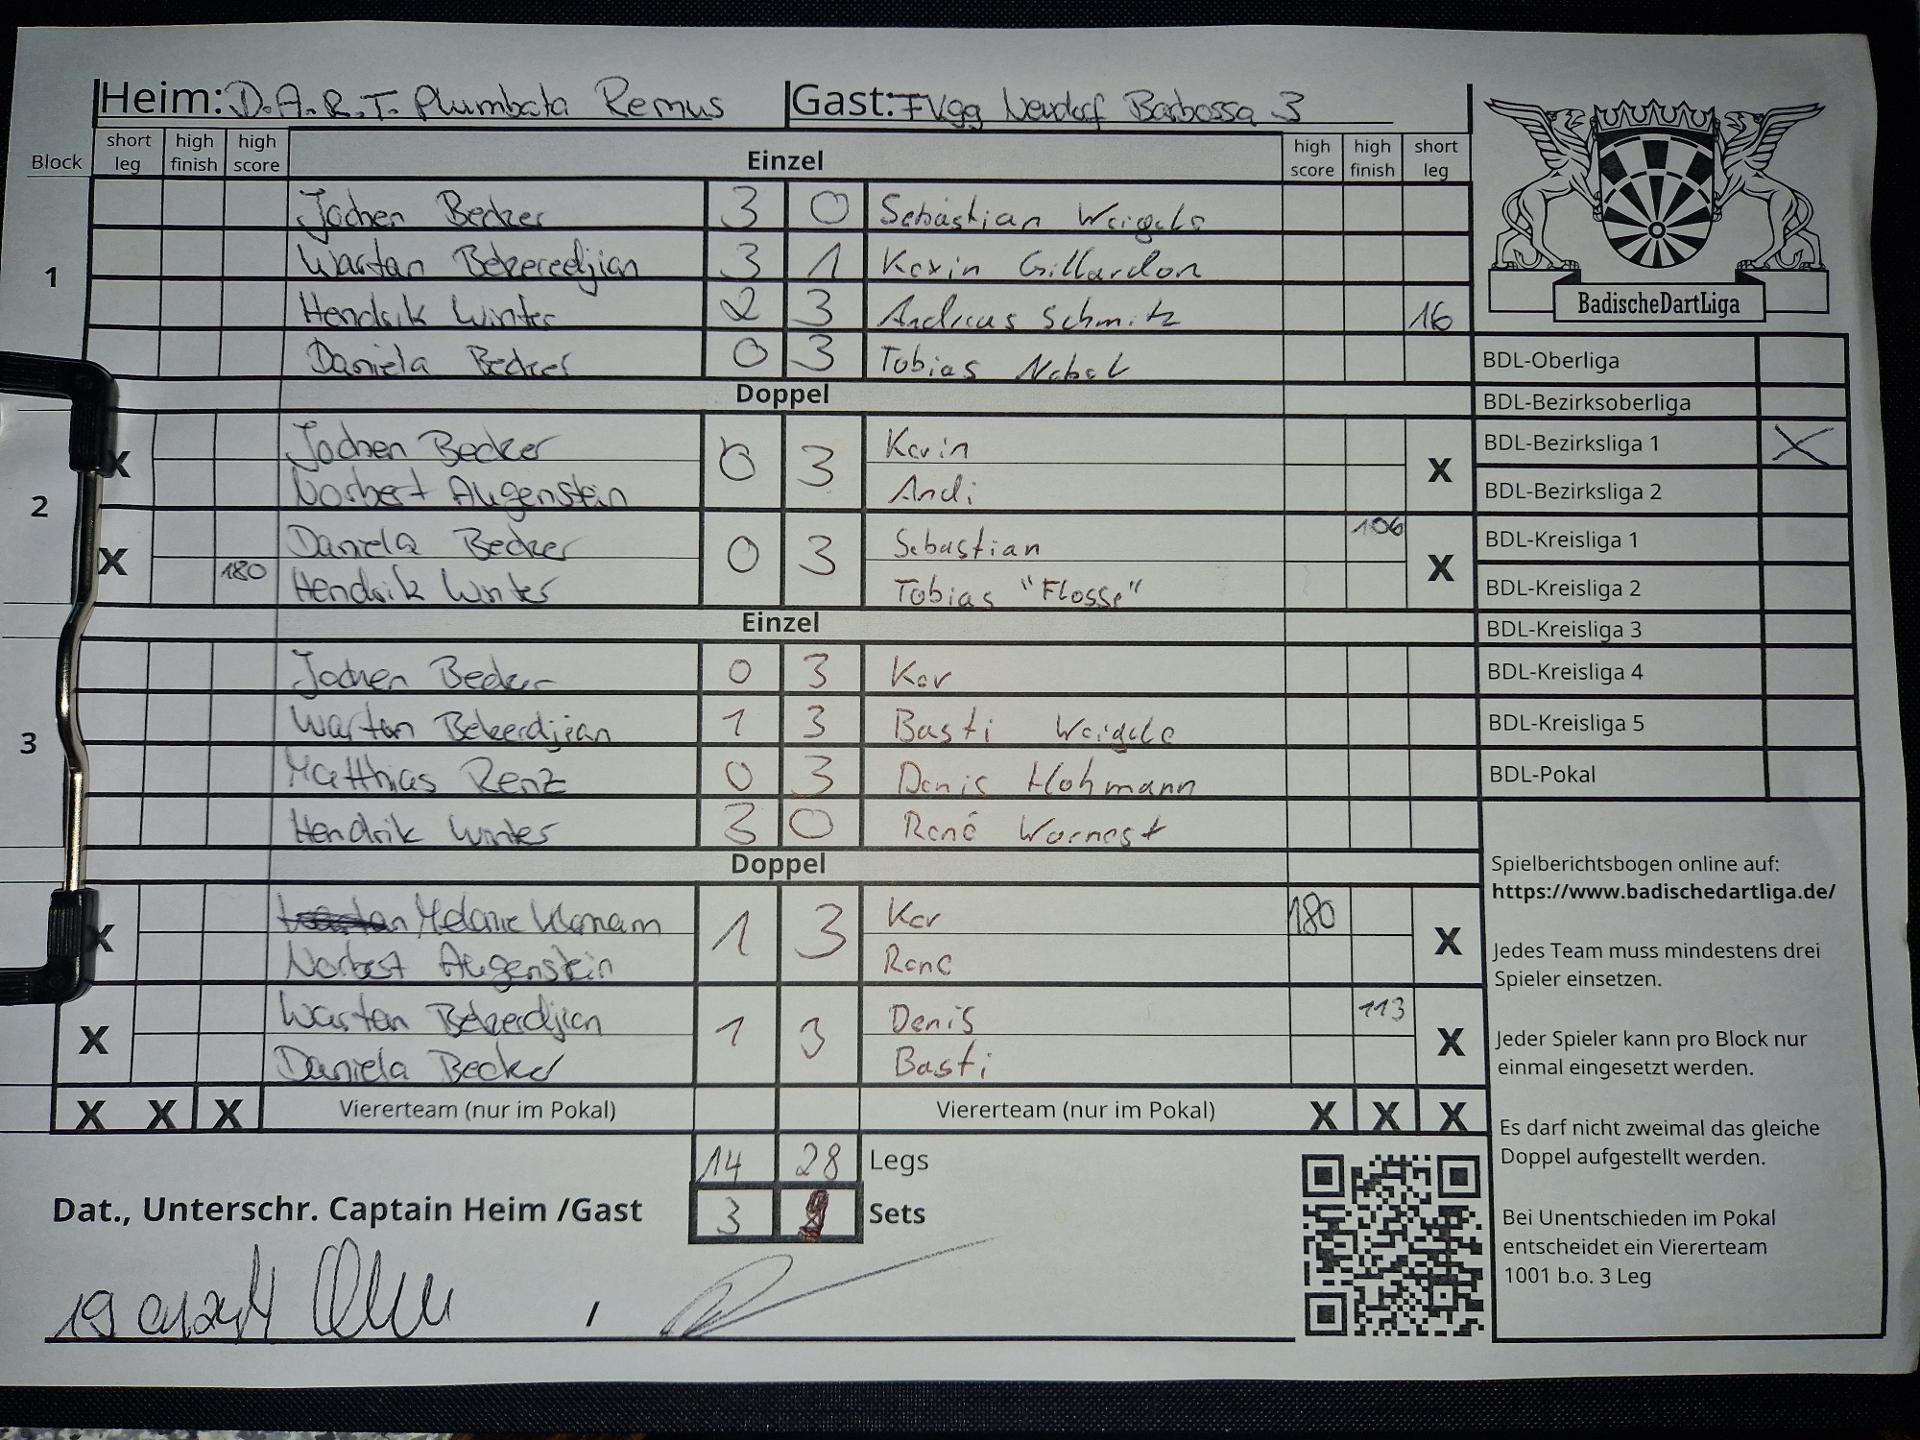 Heim: D.A.R.T. Plumbata Remus Gast: FVgg Neudorf Barbossa 3
Block short leg high finish high score Einzel high score high finish short leg
1
Jochen Becker 3 0 Sebastian Weigele
Wartan Bekeredjian 3 1 Kevin Gillardon
Hendrik Winter 2 3 Andreas Schmitz 16
Daniela Becker 0 3 Tobias Nebel
Doppel
2
X Jochen Becker 0 3 Kevin X
Norbert Augenstein Andi
X Daniela Becker 0 3 Sebastian 106 X
180 Hendrik Winter Tobias "Flosse"
Einzel
3
Jochen Becker 0 3 Kev
Wartan Bekerdjian 1 3 Basti Weigele
Matthias Renz 0 3 Denis Hohmann
Hendrik Winter 3 0 René Wernest
Doppel
X Melanie 1 3 Kev 180 X
Norbert Augenstein René
X Wartan Bekerdjian 1 3 Denis 113 X
Daniela Becker Basti
X X X Viererteam (nur im Pokal) Viererteam (nur im Pokal) X X X
14 28 Legs
Dat., Unterschr. Captain Heim /Gast 3 Sets
/
BadischeDartLiga
BDL-Oberliga
BDL-Bezirksoberliga
BDL-Bezirksliga 1 X
BDL-Bezirksliga 2
BDL-Kreisliga 1
BDL-Kreisliga 2
BDL-Kreisliga 3
BDL-Kreisliga 4
BDL-Kreisliga 5
BDL-Pokal
Spielberichtsbogen online auf:
https://www.badischedartliga.de/
Jedes Team muss mindestens drei
Spieler einsetzen.
Jeder Spieler kann pro Block nur
einmal eingesetzt werden.
Es darf nicht zweimal das gleiche
Doppel aufgestellt werden.
Bei Unentschieden im Pokal
entscheidet ein Viererteam
1001 b.o. 3 Leg